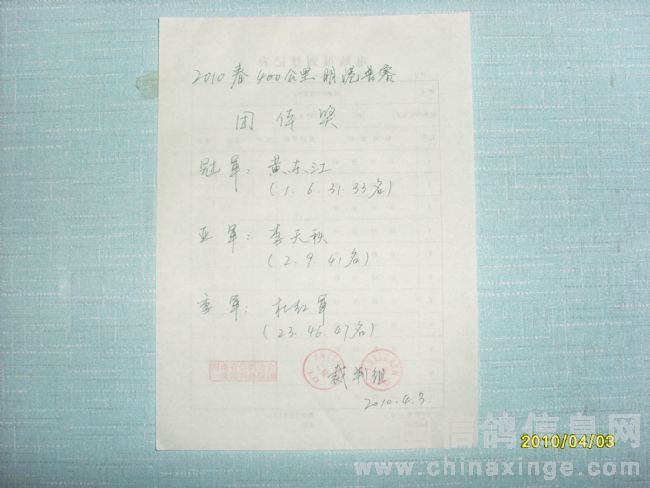 2010春400公里
团体奖
冠军：黄东江
（1.6.31.33名）
亚军：李天秧
（2.9.41名）
季军：杜红军
（23.46.47名）
裁判组
2010.4.3.
信鸽信息网
2010/04/03
www.chinaxinge.com